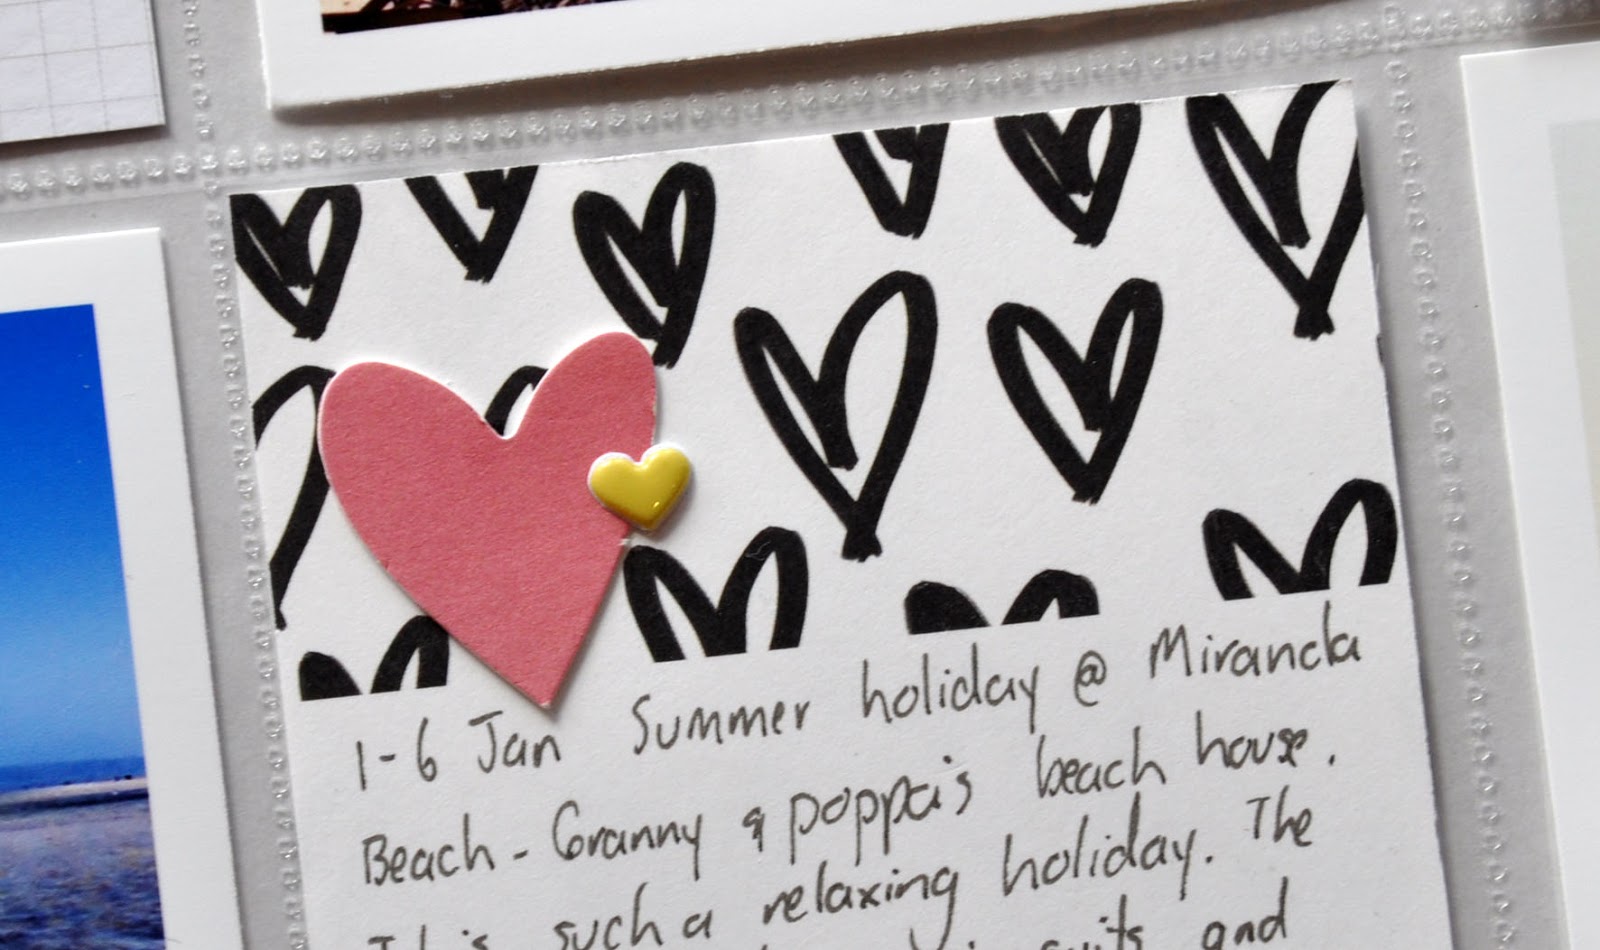 1-6 Jan Summer holiday @ Miranda
Beach - Granny & poppa's beach house.
such a relaxing holiday. The
and